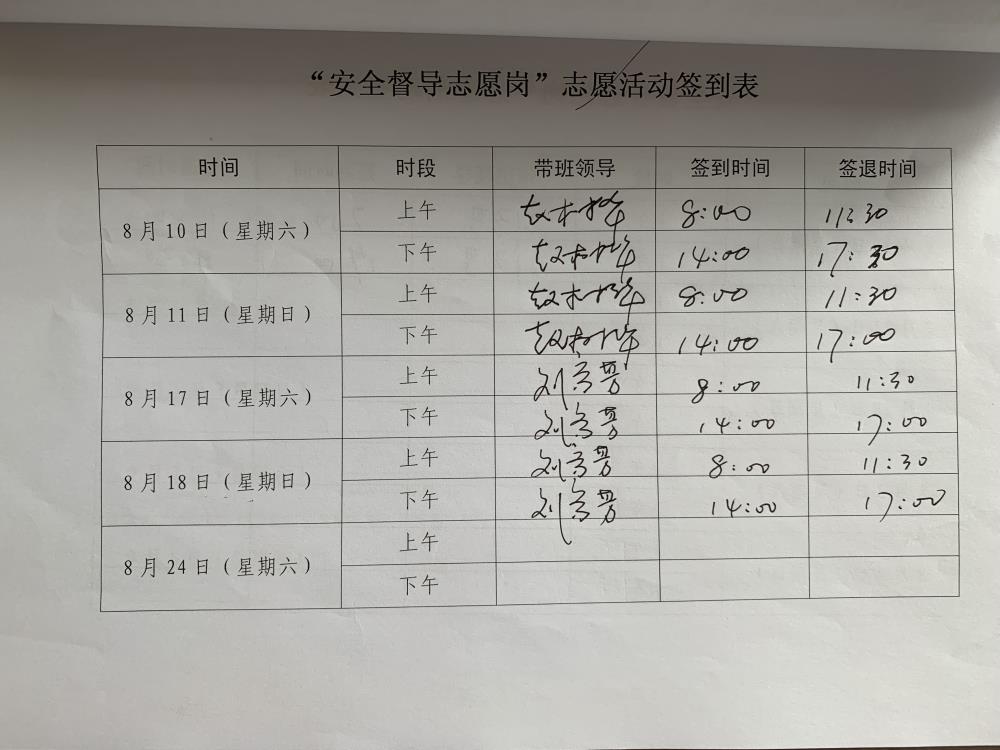 “安全督导志愿岗”志愿活动签到表
时间 时段 带班领导 签到时间 签退时间
8月10日（星期六） 上午 8:00 11:30
下午 14:00 17:30
8月11日（星期日） 上午 8:00 11:30
下午 14:00 17:00
8月17日（星期六） 上午 刘 8:00 11:30
下午 刘 14:00 17:00
8月18日（星期日） 上午 刘 8:00 11:30
下午 刘 14:00 17:00
8月24日（星期六） 上午
下午